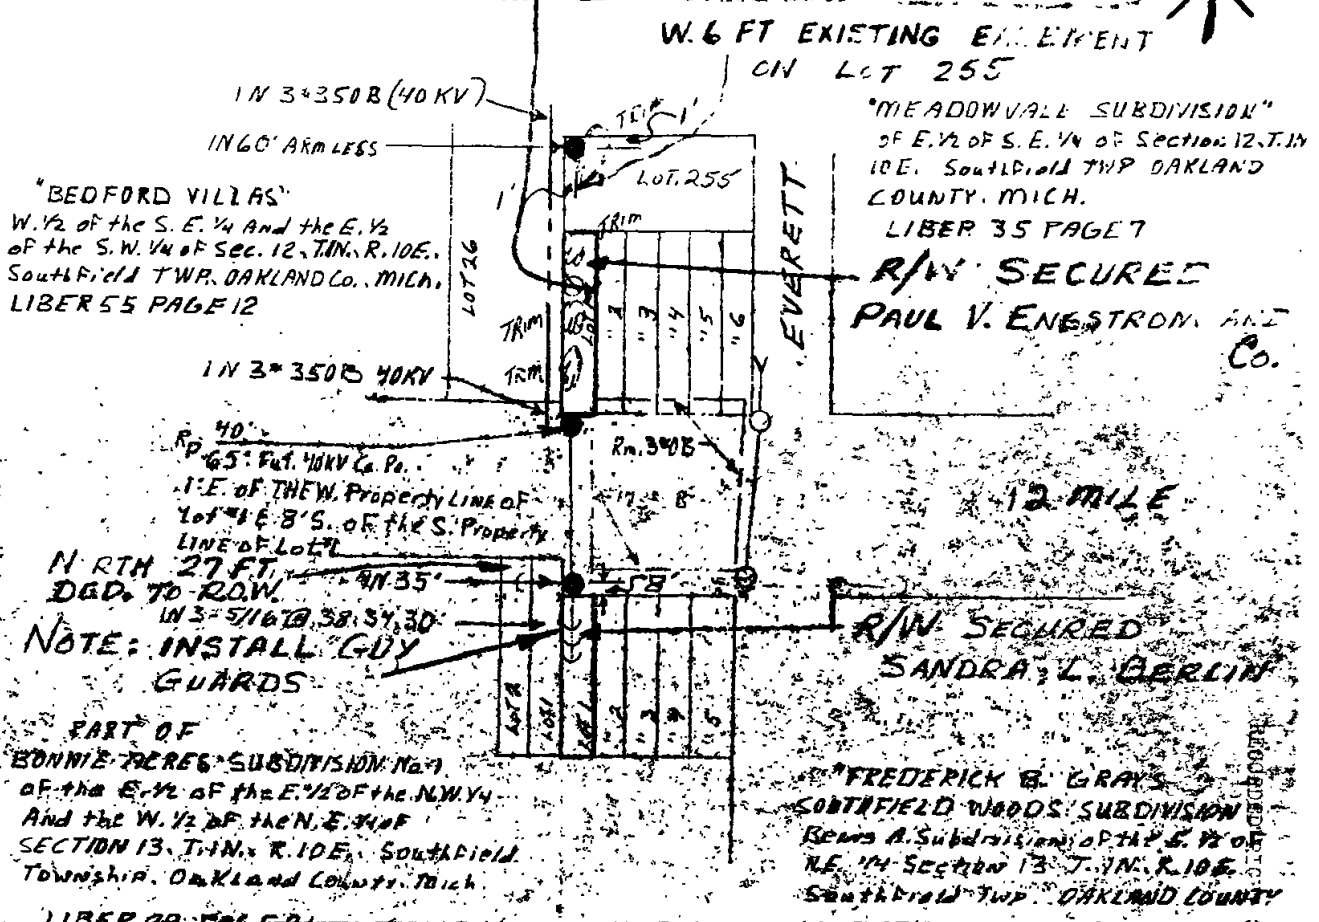 W. 6 FT EXISTING
ON LOT 255
IN 3#350B (40 KV)
TRIM 1'
IN 60' ARMLESS
"MEADOWVALE SUBDIVISION"
of E.1/2 OF S.E. 1/4 of Section 12. T.1N
10E. Southfield TWP OAKLAND
COUNTY. MICH.
LIBER 35 PAGE 7
LOT. 255
1'
"BEDFORD VILLAS"
W. 1/2 of the S.E. 1/4 And the E. 1/2
of the S.W. 1/4 of Sec. 12, T.1N., R. 10E.
SouthField TWP. OAKLAND Co., Mich.
LIBER 55 PAGE 12
LOT 26
TRIM
EVERETT
R/W SECURED
PAUL V. ENGSTROM AND
Co.
LOT 1
" 2
" 3
" 4
" 5
" 6
TRIM
TRIM
IN 3#350B 40KV
Rp 40'
65' Fut. 40KV Co. Po.
1' E. OF THE W. Property LINE OF
Lot #1 & 8' S. OF the S. Property
LINE OF Lot 1
Rm. 3#0B
17
8'
12 MILE
NORTH 27 FT.
DED. TO R.O.W.
IN 35'
58'
IN 3-5/16 @ 38, 34, 30
NOTE: INSTALL GUY
GUARDS
R/W SECURED
SANDRA L. BERLIN
LOT 2
LOT 1
LOT 1
" 2
" 3
" 4
" 5
PART OF
BONNIE ACRES SUBDIVISION No
of the E. 1/2 of the E. 1/2 OF the N.W. 1/4
And the W. 1/2 of the N.E. 1/4 of
SECTION 13. T.1N., R. 10E., Southfield
Township. Oakland County. Mich.
LIBER
"FREDERICK B. GRAYS
SOUTHFIELD WOODS SUBDIVISION
Being A. Subdivision of the E. 1/2 of
N.E. 1/4 Section 13 T. 1N. R. 10E.
Southfield Twp. OAKLAND COUNTY
RECORDED